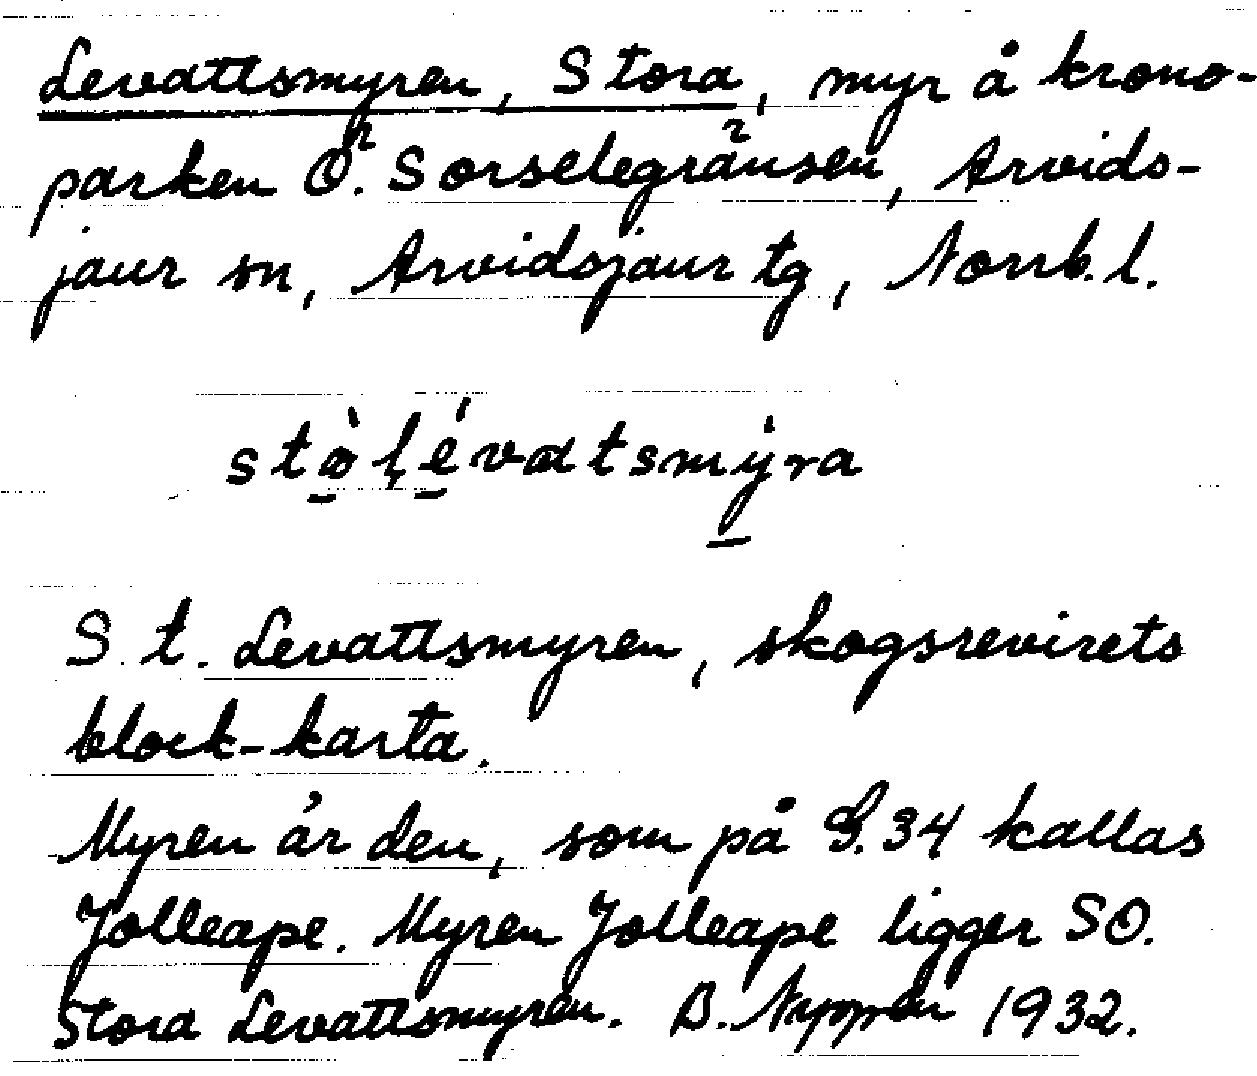 Levattsmyren, Stora, myr å krono-
parken Ö. Sorselegränsen, Arvids-
jaur sn, Arvidsjaur tg, Norrb. l.
St. Levattsmyren, skogsrevirets
block-karta.
Myren är den, som på G. 34 kallas
Jolleape. Myren Jolleape ligger SO.
Stora Levattsmyren. B. 1932.